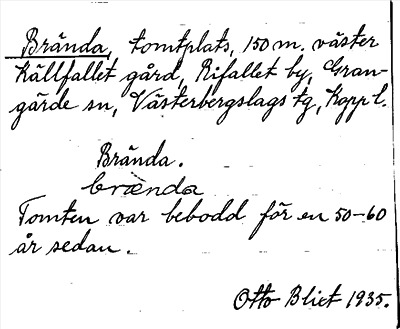 Brända, tomtplats, 150 m. väster
Källfallet gård, Rifallet by, Gran-
gärde sn, Västerbergslags tg, Kopp l.
Brända.
brænda
Tomten var bebodd för en 50-60
år sedan.
Otto Blixt 1935.